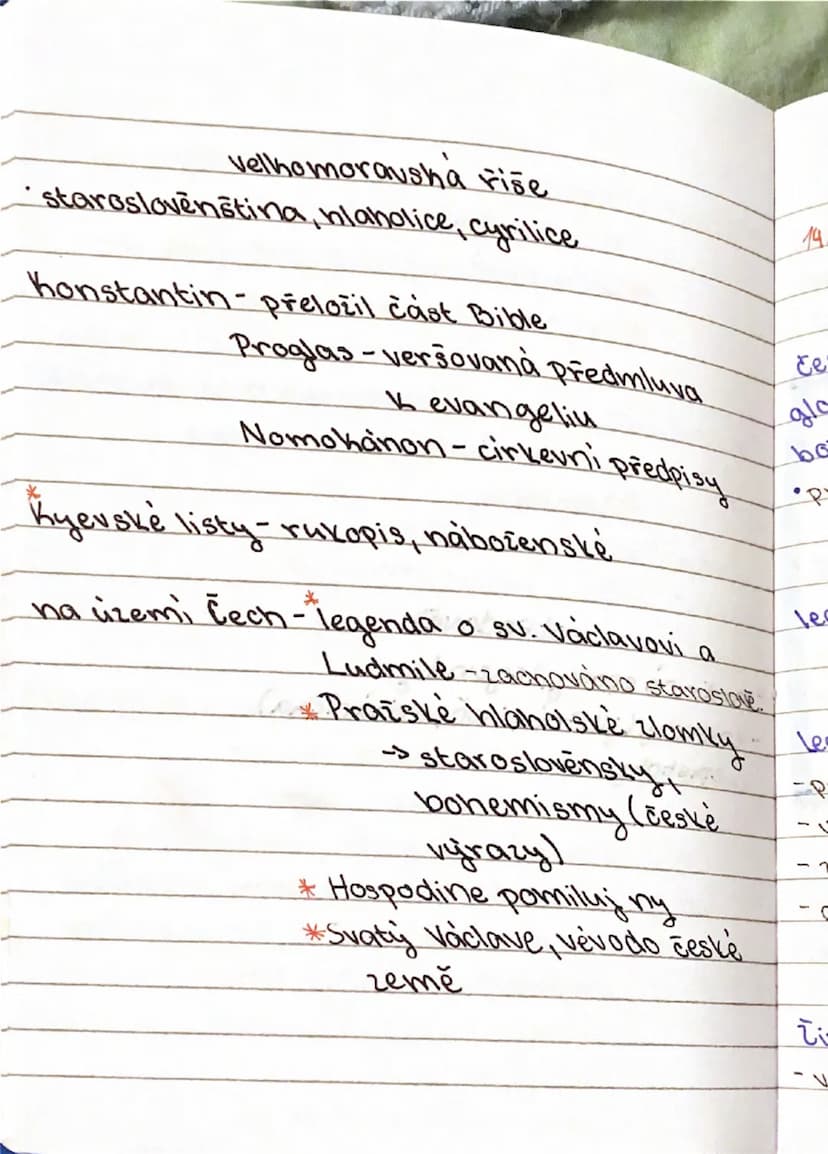 velkomoravská říše
· staroslověnština, hlaholice, cyrilice
Konstantin - přeložil část Bible
Proglas - veršovaná předmluva
k evangeliu
Nomokánon - církevní předpisy
* Kyevské listy - rukopis, náboženské
na území Čech - * legenda o sv. Václavovi a
Ludmile - zachováno staroslově.
* Pražské hlaholské zlomky
→ staroslověnsky,
bohemismy (české
výrazy)
* Hospodine pomiluj ny
* Svatý Václave, vévodo české
země
14
če
glo
bo
• p
le
le
- p
- v
ži
- v